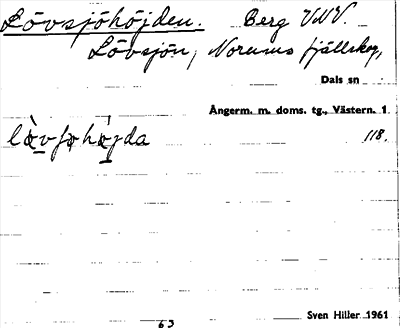 Lövsjöhöjden. Berg V.N.V.
Lövsjön, Norums fjällskog,
Dals sn
Ångerm. m. doms. tg., Västern. 1
118.
63
Sven Hiller 1961